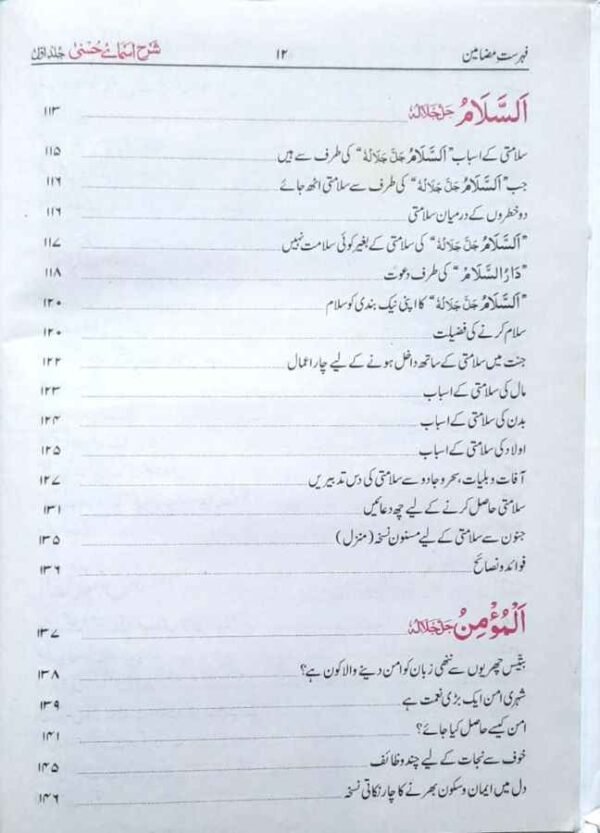 فہرست مضامین ۱۲ شرح اسمائے حُسنیٰ جلد اوّل
اَلسَّلَامُ جَلَّ جَلَالُہٗ ۱۱۳
سلامتی کے اسباب ”اَلسَّلَامُ جَلَّ جَلَالُہٗ“ کی طرف سے ہیں ۱۱۵
جب ”اَلسَّلَامُ جَلَّ جَلَالُہٗ“ کی طرف سے سلامتی اٹھ جائے ۱۱۶
دو خطروں کے درمیان سلامتی ۱۱۶
”اَلسَّلَامُ جَلَّ جَلَالُہٗ“ کی سلامتی کے بغیر کوئی سلامت نہیں ۱۱۷
”دَارُ السَّلَام“ کی طرف دعوت ۱۱۸
”اَلسَّلَامُ جَلَّ جَلَالُہٗ“ کا اپنی نیک بندی کو سلام ۱۲۰
سلام کرنے کی فضیلت ۱۲۰
جنت میں سلامتی کے ساتھ داخل ہونے کے لیے چار اعمال ۱۲۲
مال کی سلامتی کے اسباب ۱۲۳
بدن کی سلامتی کے اسباب ۱۲۴
اولاد کی سلامتی کے اسباب ۱۲۵
آفات و بلیات، سحر و جادو سے سلامتی کی دس تدبیریں ۱۲۷
سلامتی حاصل کرنے کے لیے چھ دعائیں ۱۳۱
جنون سے سلامتی کے لیے مسنون نسخہ (منزل) ۱۳۵
فوائد و نصائح ۱۳۶
اَلْمُؤْمِنُ جَلَّ جَلَالُہٗ ۱۳۷
بتیس چھریوں سے ننھی زبان کو امن دینے والا کون ہے؟ ۱۳۸
شہری امن ایک بڑی نعمت ہے ۱۳۹
امن کیسے حاصل کیا جائے؟ ۱۴۱
خوف سے نجات کے لیے چند وظائف ۱۴۵
دل میں ایمان و سکون بھرنے کا چار نکاتی نسخہ ۱۴۶